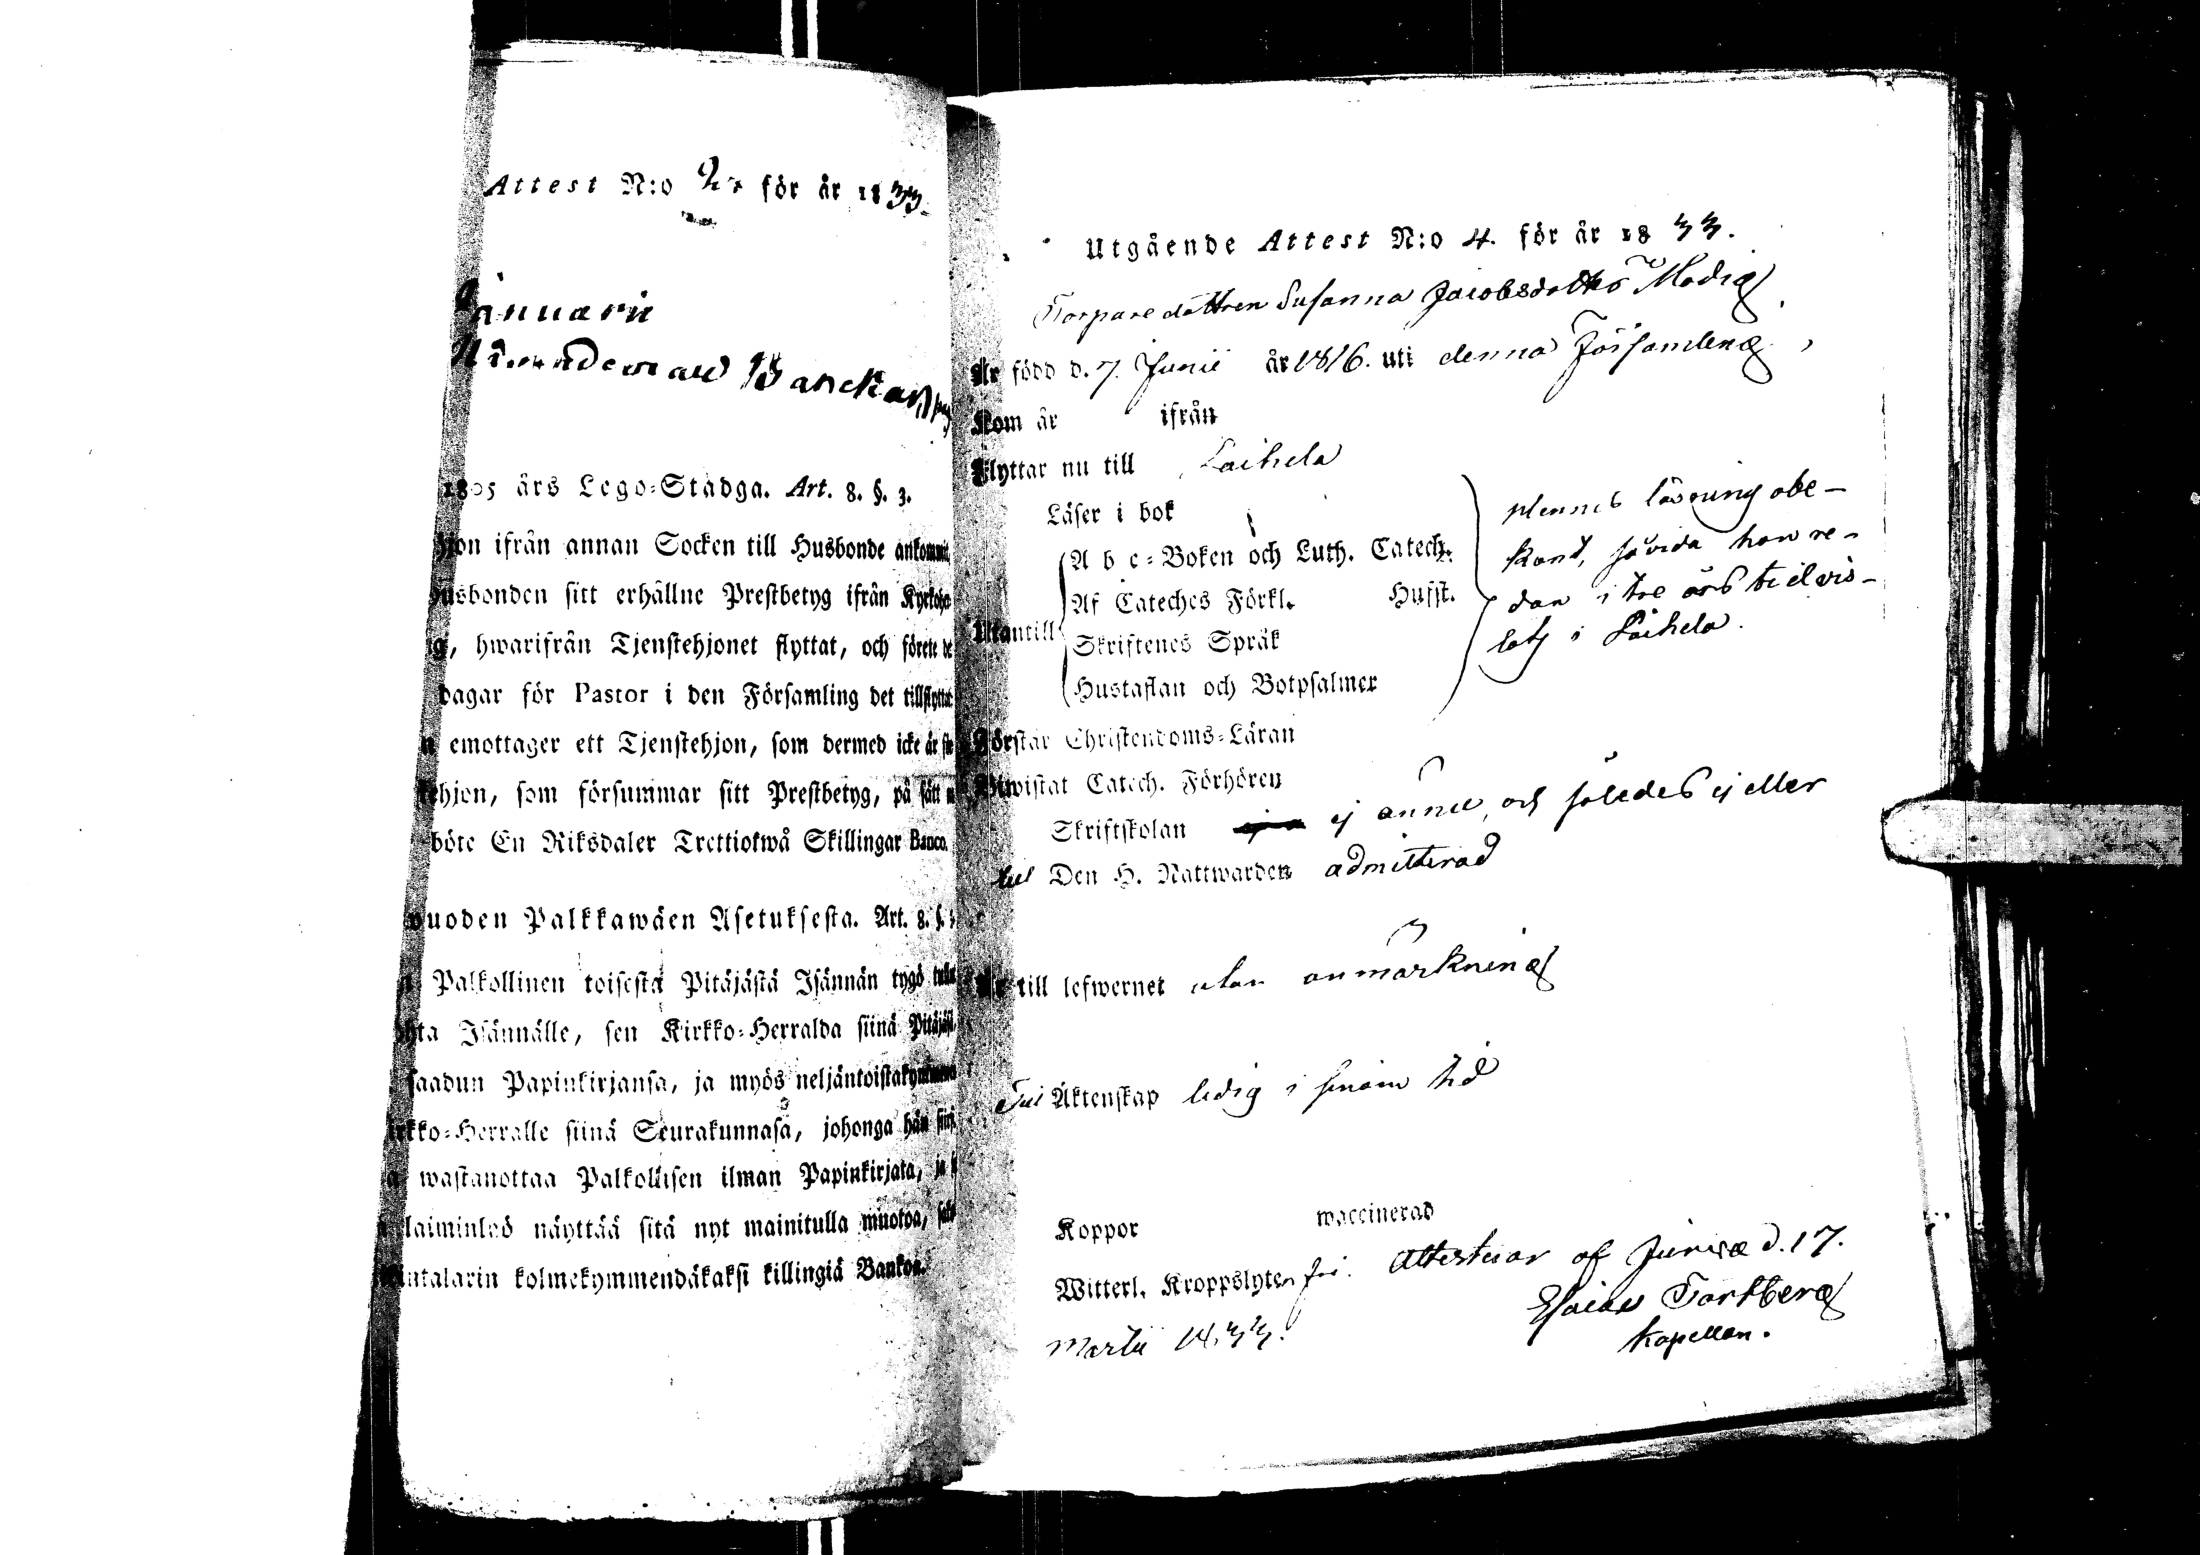 Attest N:o 2. för år 1833.
Januarii
1805 års Lego-Stadga. Art. 8. §. 3.
hjon ifrån annan Socken till Husbonde ankommit
husbonden sitt erhållne Prestbetyg ifrån Kyrkoher
ig, hwarifrån Tjenstehjonet flyttat, och förete de
dagar för Pastor i den Församling det tillflyttat
n emottager ett Tjenstehjon, som dermed icke är för
tehjon, som försummar sitt Prestbetyg, på sätt n
böte En Riksdaler Trettiotwå Skillingar Banco.
wuoden Palkkawäen Asetuksesta. Art. 8. §. 3
Palkollinen toisesta Pitäjästä Isännän tygö tulla
ohta Isännälle, sen Kirkko-Herralda siinä Pitäjäs
saadun Papinkirjansa, ja myös neljäntoistakymmenen
irkko-Herralle siinä Seurakunnasa, johonga hän siirj
a wastanottaa Palkollisen ilman Papinkirjata, ja
laiminlyö näyttää sitä nyt mainitulla muotoa,
intalarin kolmekymmendäkaksi killingiä Bankoa.
Utgående Attest N:o 4. för år 1833.
Torpare dottren Susanna Jacobsdotter Modig
Är född d. 7. Junii år 1816. uti denna Församling,
Kom år ifrån
Flyttar nu till Laihela
Läser i bok
A b c-Boken och Luth. Catech.
Af Cateches Förkl. Hufst.
Utantill
Skriftenes Språk
Hustaflan och Botpsalmer
hennes läsning obe-
kant, såvida hon re-
dan i tre års tid vis-
tats i Laihela.
Förstår Christendoms-Läran
Biwistat Catech. Förhören
Skriftskolan ej ännu, och således ej eller
till Den H. Nattwarden admitterad
Är till lefwernet utan anmärkning
Till Äktenskap ledig i sinom tid
Koppor waccinerad
Witterl. Kroppslyten fri. Attesterar af Jurva d. 17.
Martii 1833.
Esaias Fortberg
Kapellan.